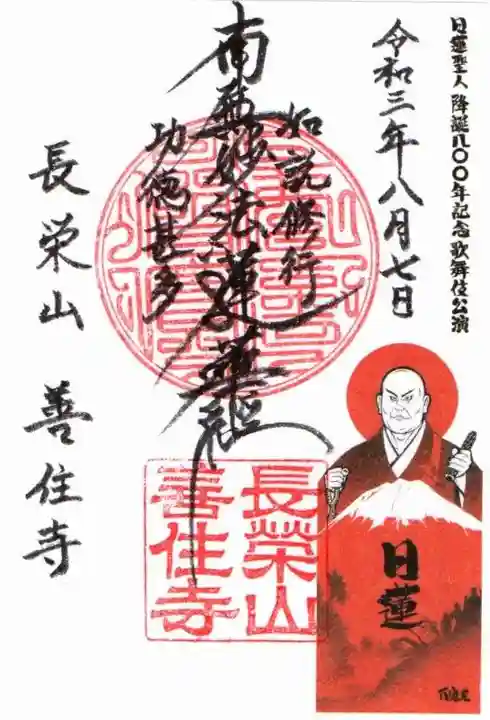 日蓮聖人 降誕八〇〇年記念 歌舞伎公演
令和三年八月七日
如説修行
南無妙法蓮華経
功徳甚多
長栄山 善住寺
長榮山
善住寺
日蓮